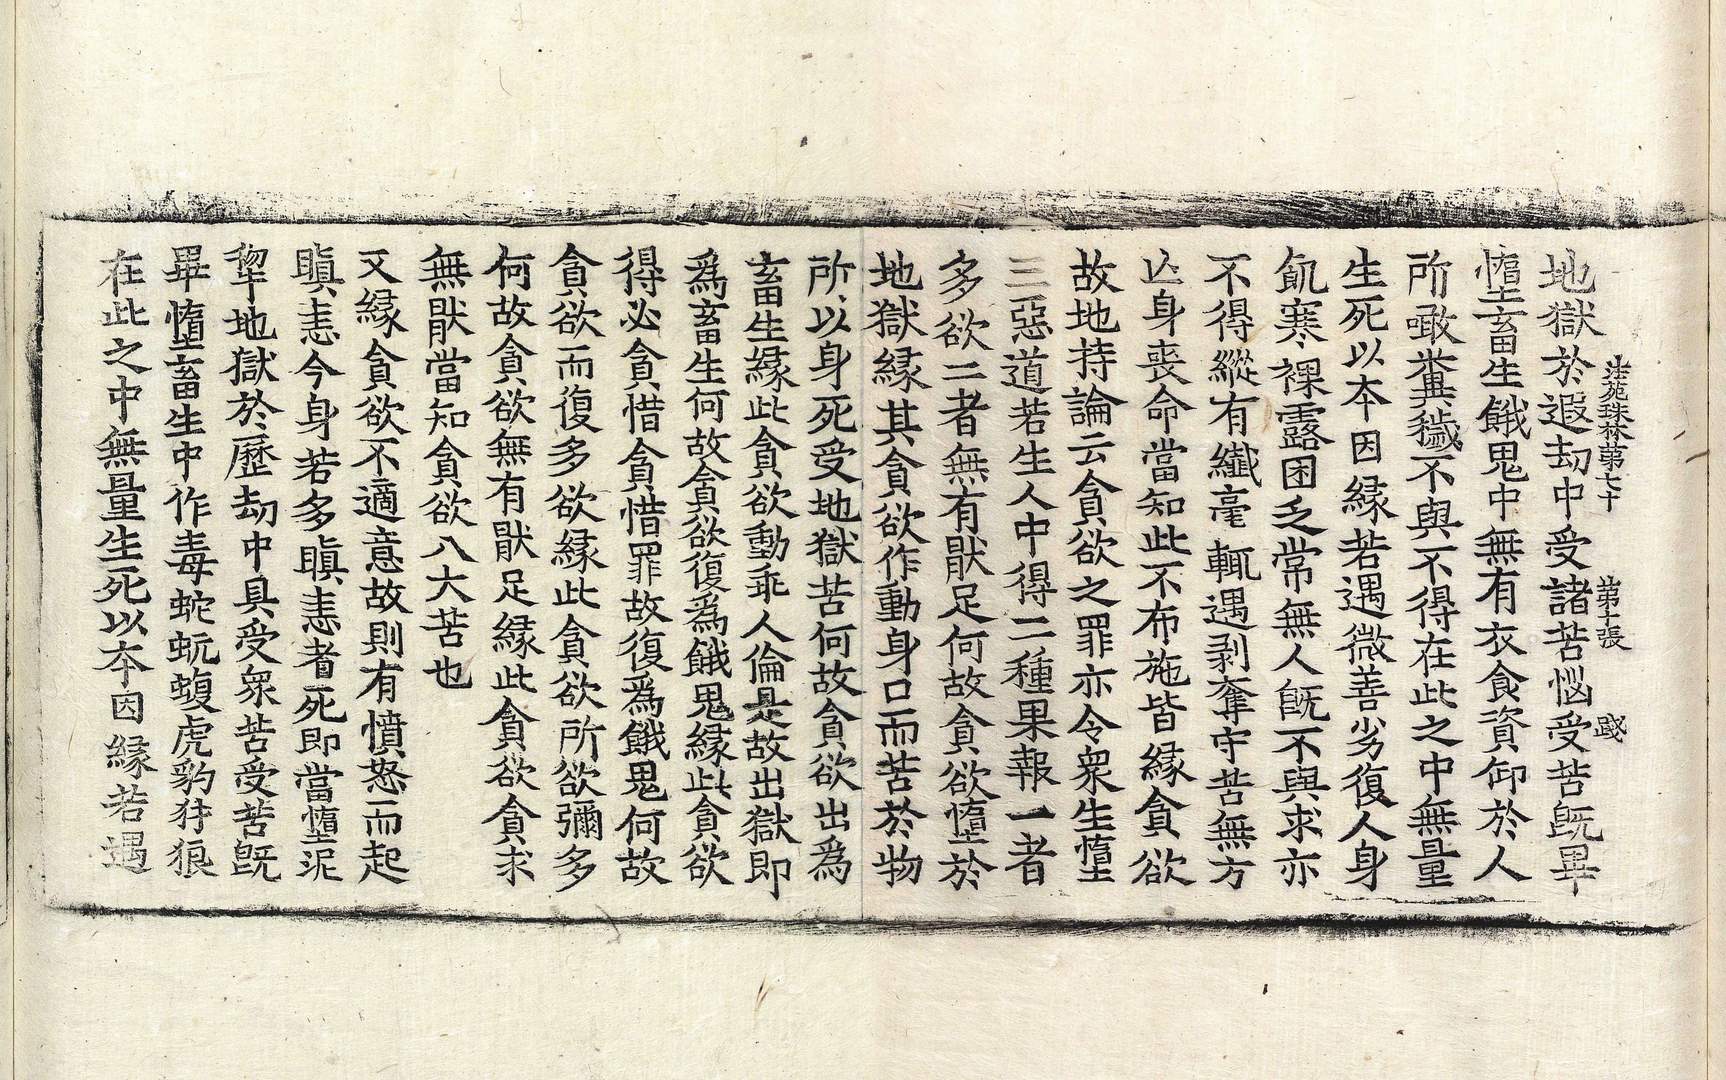 法苑珠林第七十 第十張 踐
地獄於遐劫中受諸苦惱受苦旣畢
墮畜生餓鬼中無有衣食資仰於人
所噉糞穢不與不得在此之中無量
生死以本因緣若遇微善劣復人身
飢寒裸露困乏常無人旣不與求亦
不得縱有纖毫輒遇剥奪守苦無方
亾身喪命當知此不布施皆緣貪欲
故地持論云貪欲之罪亦令衆生墮
三惡道若生人中得二種果報一者
多欲二者無有猒足何故貪欲墮於
地獄緣其貪欲作動身口而苦於物
所以身死受地獄苦何故貪欲出爲
畜生緣此貪欲動乖人倫是故出獄即
爲畜生何故貪欲復爲餓鬼緣此貪欲
得必貪惜貪惜罪故復爲餓鬼何故
貪欲而復多欲緣此貪欲所欲彌多
何故貪欲無有猒足緣此貪欲貪求
無猒當知貪欲八大苦也
又緣貪欲不適意故則有憤怒而起
瞋恚今身若多瞋恚者死即當墮泥
犂地獄於歷劫中具受衆苦受苦旣
畢墮畜生中作毒蛇蚖蝮虎豹犲狼
在此之中無量生死以本因緣若遇